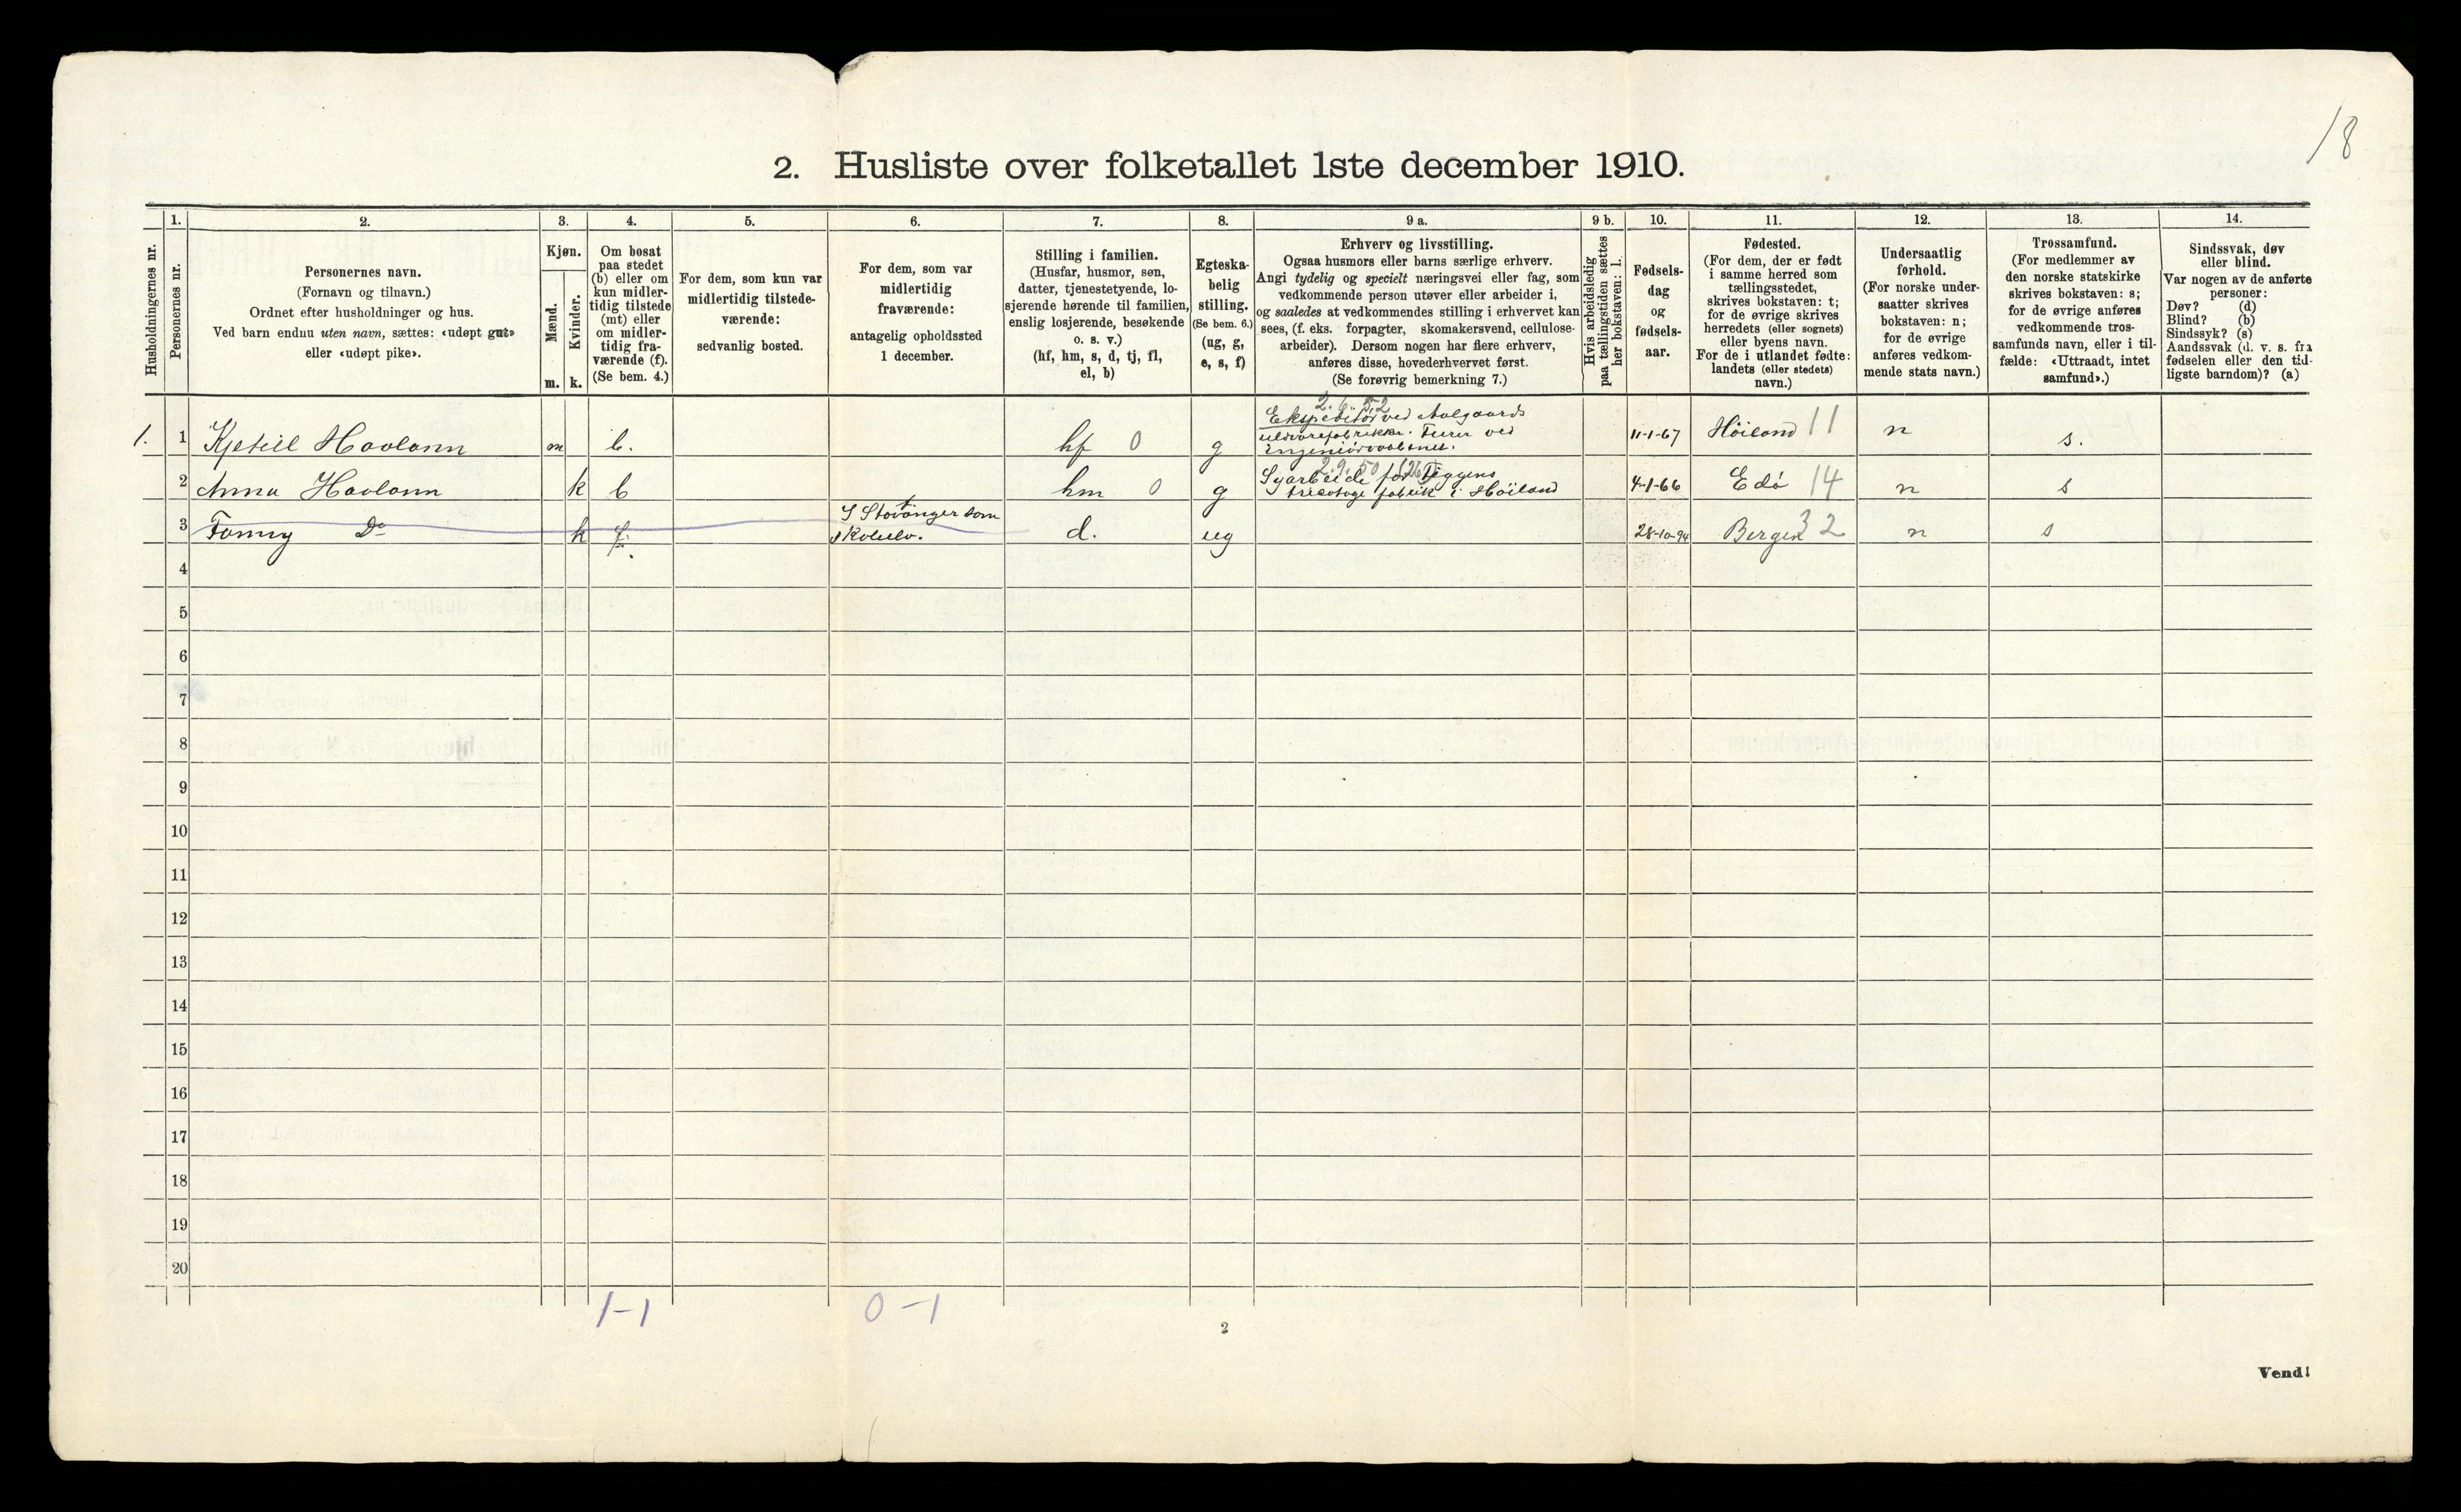 18
2. Husliste over folketallet 1ste december 1910.
Husholdningernes nr.
1.
Personernes nr.
2.
Personernes navn.
(Fornavn og tilnavn.)
Ordnet efter husholdninger og hus.
Ved barn endnu uten navn, sættes: «udøpt gut»
eller «udøpt pike».
3.
Kjøn.
Mænd.
m.
Kvinder.
k.
4.
Om bosat
paa stedet
(b) eller om
kun midler-
tidig tilstede
(mt) eller
om midler-
tidig fra-
værende (f).
(Se bem. 4.)
5.
For dem, som kun var
midlertidig tilstede-
værende:
sedvanlig bosted.
6.
For dem, som var
midlertidig
fraværende:
antagelig opholdssted
1 december.
7.
Stilling i familien.
(Husfar, husmor, søn,
datter, tjenestetyende, lo-
sjerende hørende til familien,
enslig losjerende, besøkende
o. s. v.)
(hf, hm, s, d, tj, fl,
el, b)
8.
Egteska-
belig
stilling.
(Se bem. 6.)
(ug, g,
e, s, f)
9 a.
Erhverv og livsstilling.
Ogsaa husmors eller barns særlige erhverv.
Angi tydelig og specielt næringsvei eller fag, som
vedkommende person utøver eller arbeider i,
og saaledes at vedkommendes stilling i erhvervet kan
sees, (f. eks. forpagter, skomakersvend, cellulose-
arbeider). Dersom nogen har flere erhverv,
anføres disse, hovederhvervet først.
(Se forøvrig bemerkning 7.)
9 b.
Hvis arbeidsledig
paa tællingstiden sættes
her bokstaven: l.
10.
Fødsels-
dag
og
fødsels-
aar.
11.
Fødested.
(For dem, der er født
i samme herred som
tællingsstedet,
skrives bokstaven: t;
for de øvrige skrives
herredets (eller sognets)
eller byens navn.
For de i utlandet fødte:
landets (eller stedets)
navn.)
12.
Undersaatlig
forhold.
(For norske under-
saatter skrives
bokstaven: n;
for de øvrige
anføres vedkom-
mende stats navn.)
13.
Trossamfund.
(For medlemmer av
den norske statskirke
skrives bokstaven: s;
for de øvrige anføres
vedkommende tros-
samfunds navn, eller i til-
fælde: «Uttraadt, intet
samfund».)
14.
Sindssvak, døv
eller blind.
Var nogen av de anførte
personer:
Døv? (d)
Blind? (b)
Sindssyk? (s)
Aandssvak (d. v. s. fra
fødselen eller den tid-
ligste barndom)? (a)
2. 6. 52
Ekspeditør ved Aalgaards
uldvarefabrikke. Furer ved
ingeniørvaabnet.
1. 1 Kjetill Havlann m b. hf 0 g 11-1-67 Høiland 11 n s.
2. 9. 50 (26)
Syarbeide for Figgens
tricotage fabrik i Høiland
2 Anna Havlann k b hm 0 g 4-1-66 Edø 14 n s
I Stavanger som
skoleelev.
3 Fanny Do k f. d. ug 28-10-94 Bergen 32 n s
4
5
6
7
8
9
10
11
12
13
14
15
16
17
18
19
20
1-1 0-1
2
Vend!